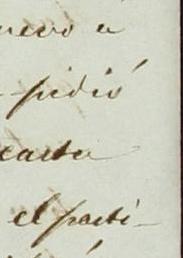 nuevo a
pidió
carta
el parti-